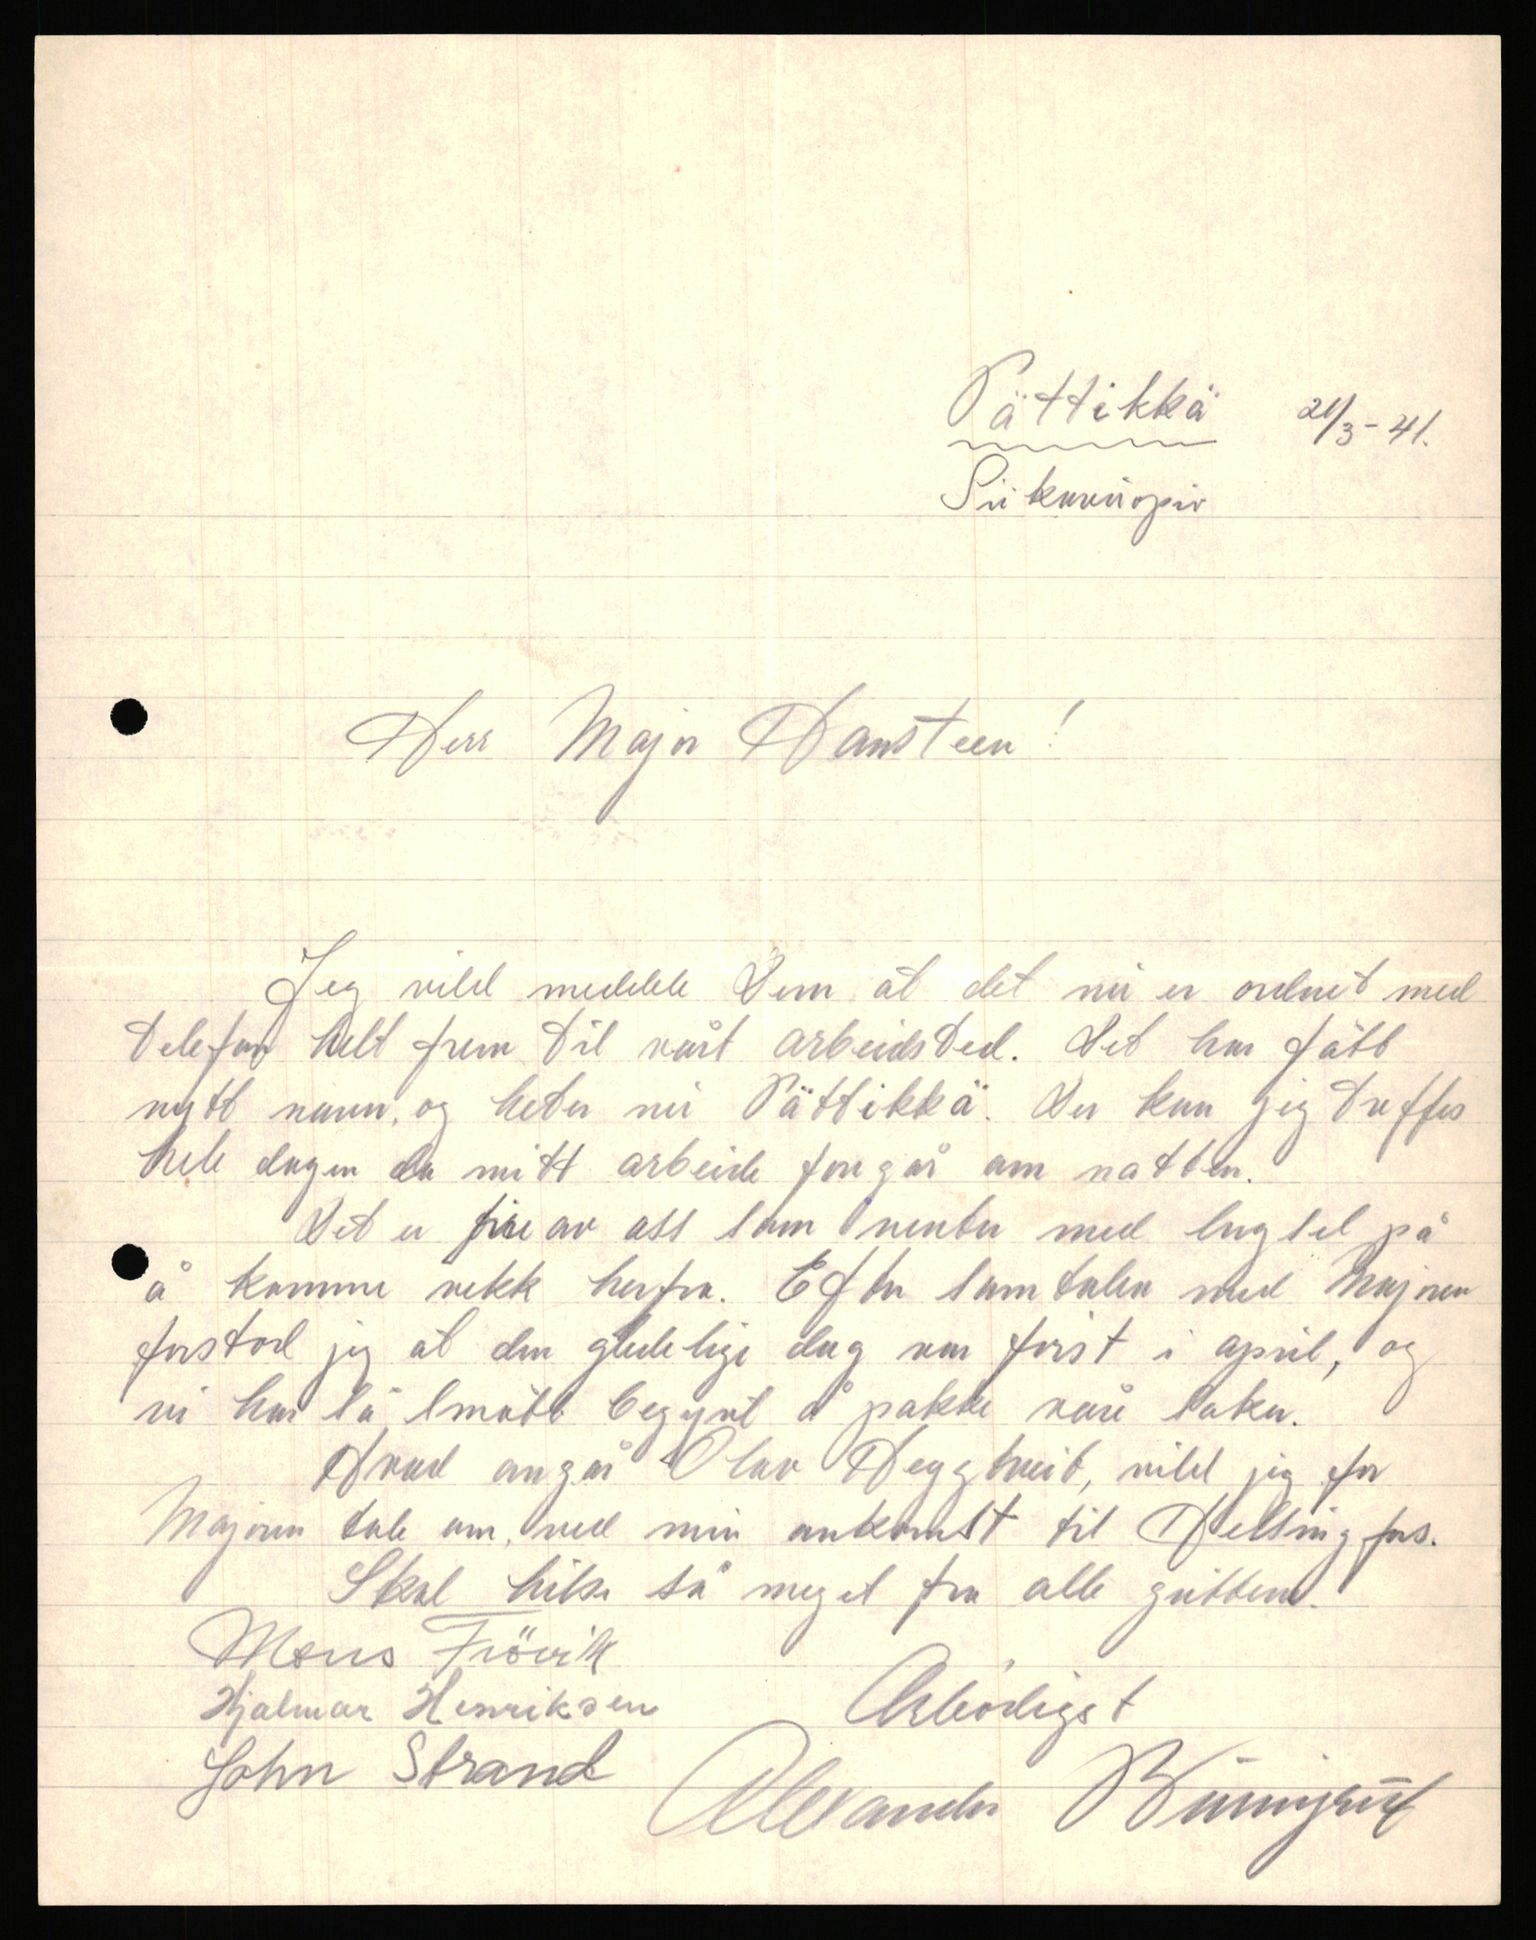 Pättikkä 21/3-41.
Siikavuopio
Herr Major Hansteen!
Jeg vild meddele Dem at det nu er ordnet med
telefon helt frem til vårt arbeidsted. Det har fått
nytt navn, og heter nu Pättikkä. Der kan jeg treffes
hele dagen da mitt arbeide foregår om natten.
Det er fire av oss som venter med lengsel på
å komme vekk herfra. Efter samtalen med Majoren
forstod jeg at den gledelige dag var først i april, og
vi har så smått begynt å pakke våre saker.
Hvad angår Olav Heggtveit, vild jeg for
Majoren tale om, ved min ankomst til Helsingfors.
Skal hilse så meget fra alle guttene.
Mons Frövik
Hjalmar Henriksen Arbødigst
John Strand
Alexander